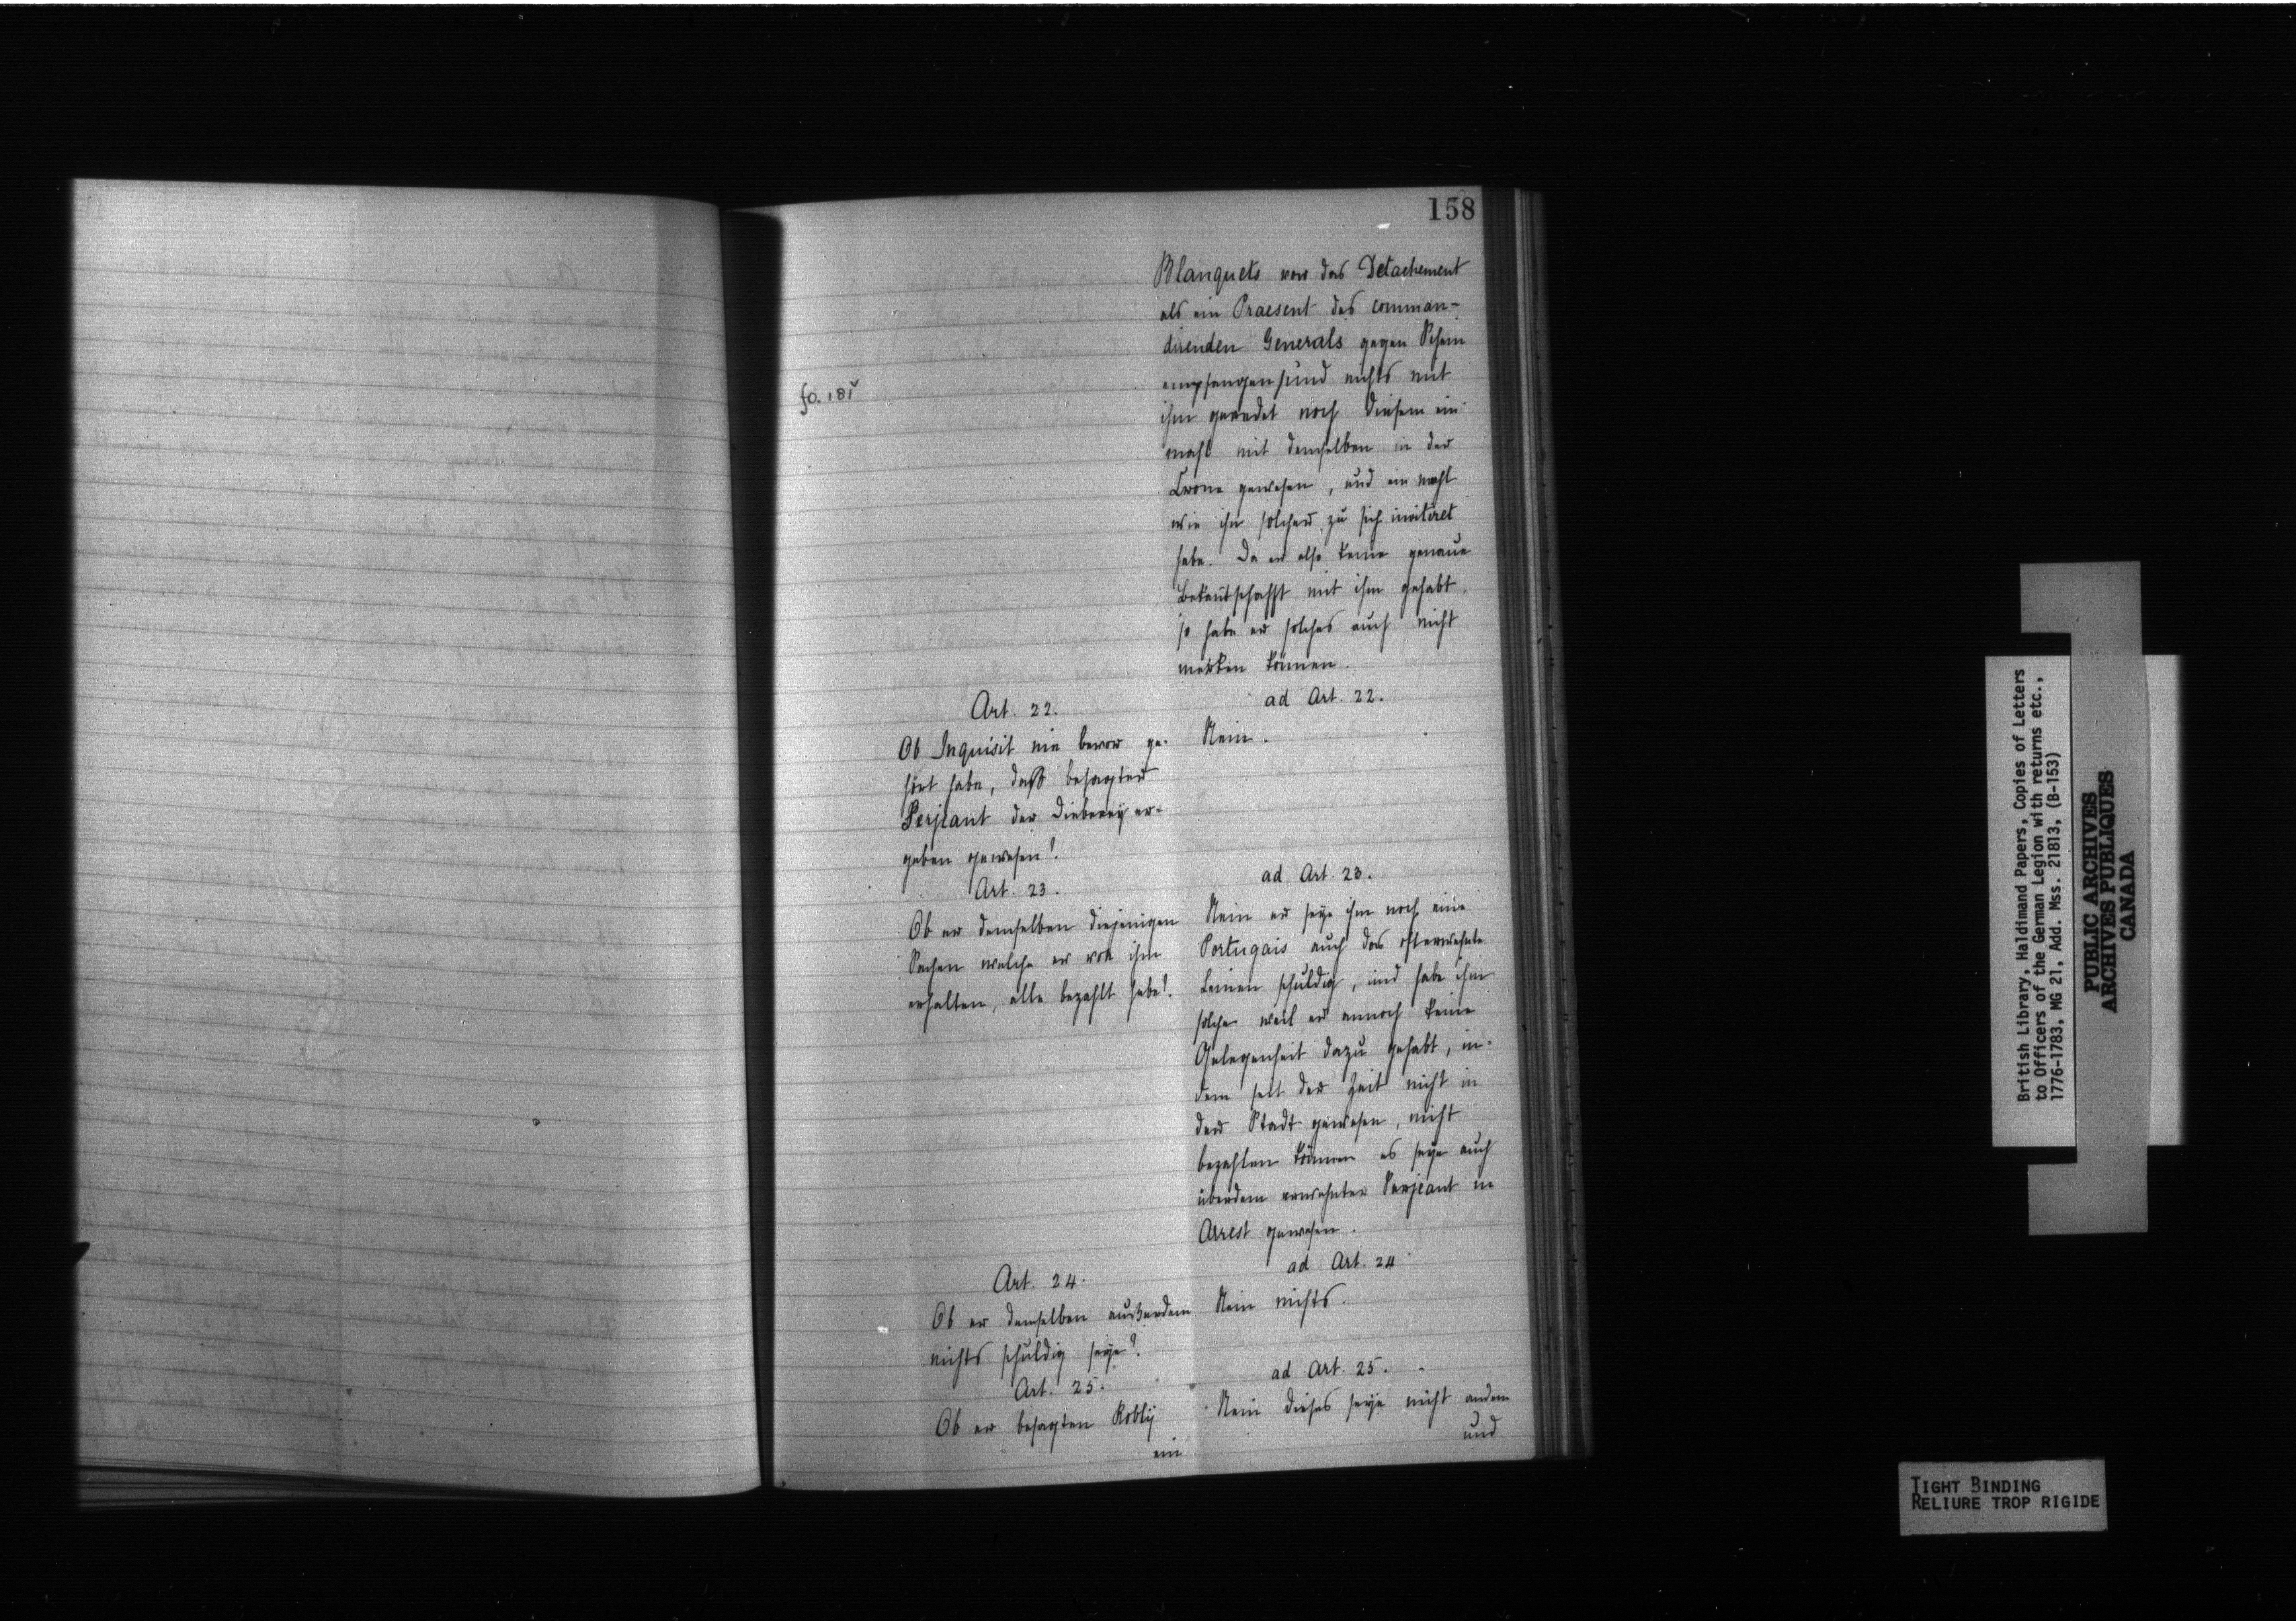 158
Blanquets vor das Detachement
als ein Praesent des comman-
direnden Generals gegen Schein
fo. 181v
empfangen/und nichts mit
ihm geredet noch diesem ein
mahl mit demselben in der
Crone gewesen, und ein mahl
wie ihn solcher zu sich invitiret
habe. Da er also keine genaue
Bekantschafft mit ihm gehabt.
so habe er solches auch nicht
merken können.
Art. 22.
Ob Inquisit nie bevor ge-
hört habe, daß besagter
Serjeant der Dieberey er-
geben gewesen?
ad Art. 22.
Nein.
Art. 23.
Ob er demselben diejenigen
Sachen welche er von ihm
erhalten, alle bezahlt habe?
ad Art. 23.
Nein er seye ihm noch eine
Portugais auch das ofterwehnte
Leinen schuldig, und habe ihm
solche weil er annoch keine
Gelegenheit dazu gehabt, in-
dem seit der Zeit nicht in
der Stadt gewesen, nicht
bezahlen können es seye auch
überdem erwehnter Serjeant in
Arrest gewesen.
Art. 24.
Ob er demselben außerdem
nichts schuldig seye?
ad Art. 24
Nein nichts.
Art. 25.
Ob er besagten Robly
ein
ad Art. 25.
Nein dieses seye nicht andem
und
British Library, Haldimand Papers, Copies of Letters
to Officers of the German Legion with returns etc.,
1776-1783, MG 21, Add. Mss. 21813, (B-153)
PUBLIC ARCHIVES
ARCHIVES PUBLIQUES
CANADA
TIGHT BINDING
RELIURE TROP RIGIDE